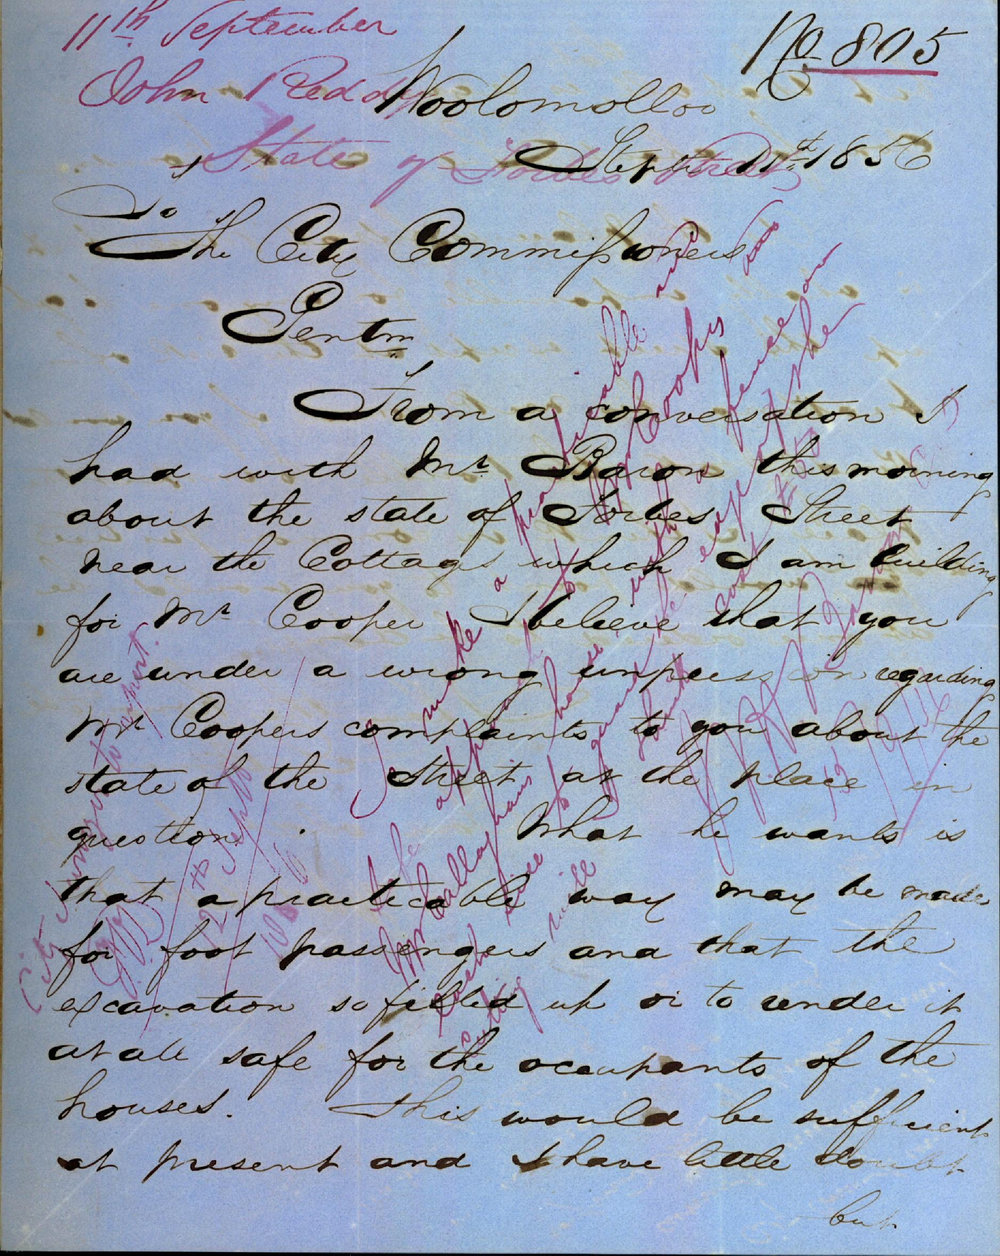 11th September
John Reddy
State of Forbes Street
No 805
Woolomolloo
Septr 11th 1856
To
The City Commissioners
Gentn
From a conversation I
had with Mr Baron this morning
about the state of Forbes Street
near the Cottages which I am building
for Mr Cooper I believe that you
are under a wrong impression regarding
Mr Coopers complaints to you about the
state of the Street at the place in
question. What he wants is
that a practicable way may be made
for foot passengers and that the
excavation so filled up or to render it
at all safe for the occupants of the
houses. This would be sufficient
at present and I have little doubt
but
City Surveyor to report.
12th Septr
To make a practicable
to Mr Coopers
Mr Callaghans house with a fence
cost
will